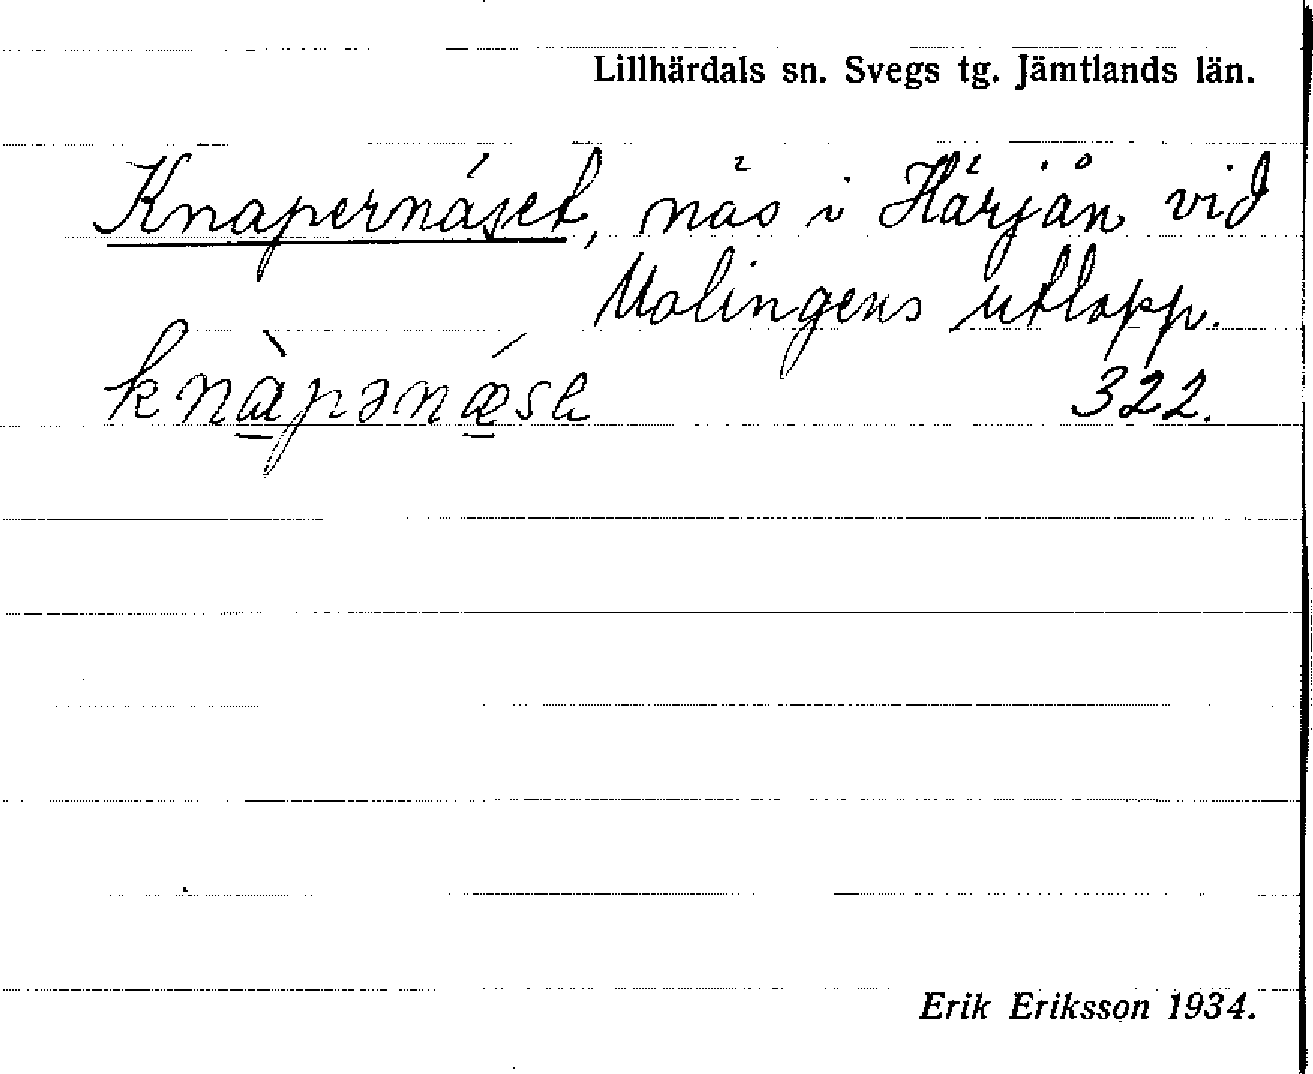 Lillhärdals sn. Svegs tg. Jämtlands län.
Knapernäset, näs i Härjån vid
Molingens utlopp.
knàpənǽsə
322.
Erik Eriksson 1934.